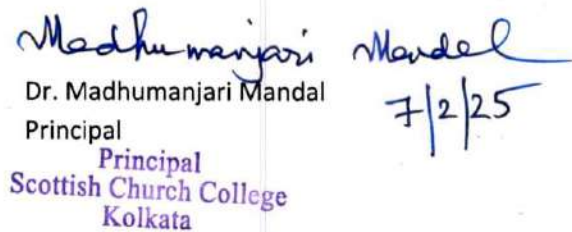 Madhumanjari Mandal
7/2/25
Dr. Madhumanjari Mandal
Principal
Principal
Scottish Church College
Kolkata